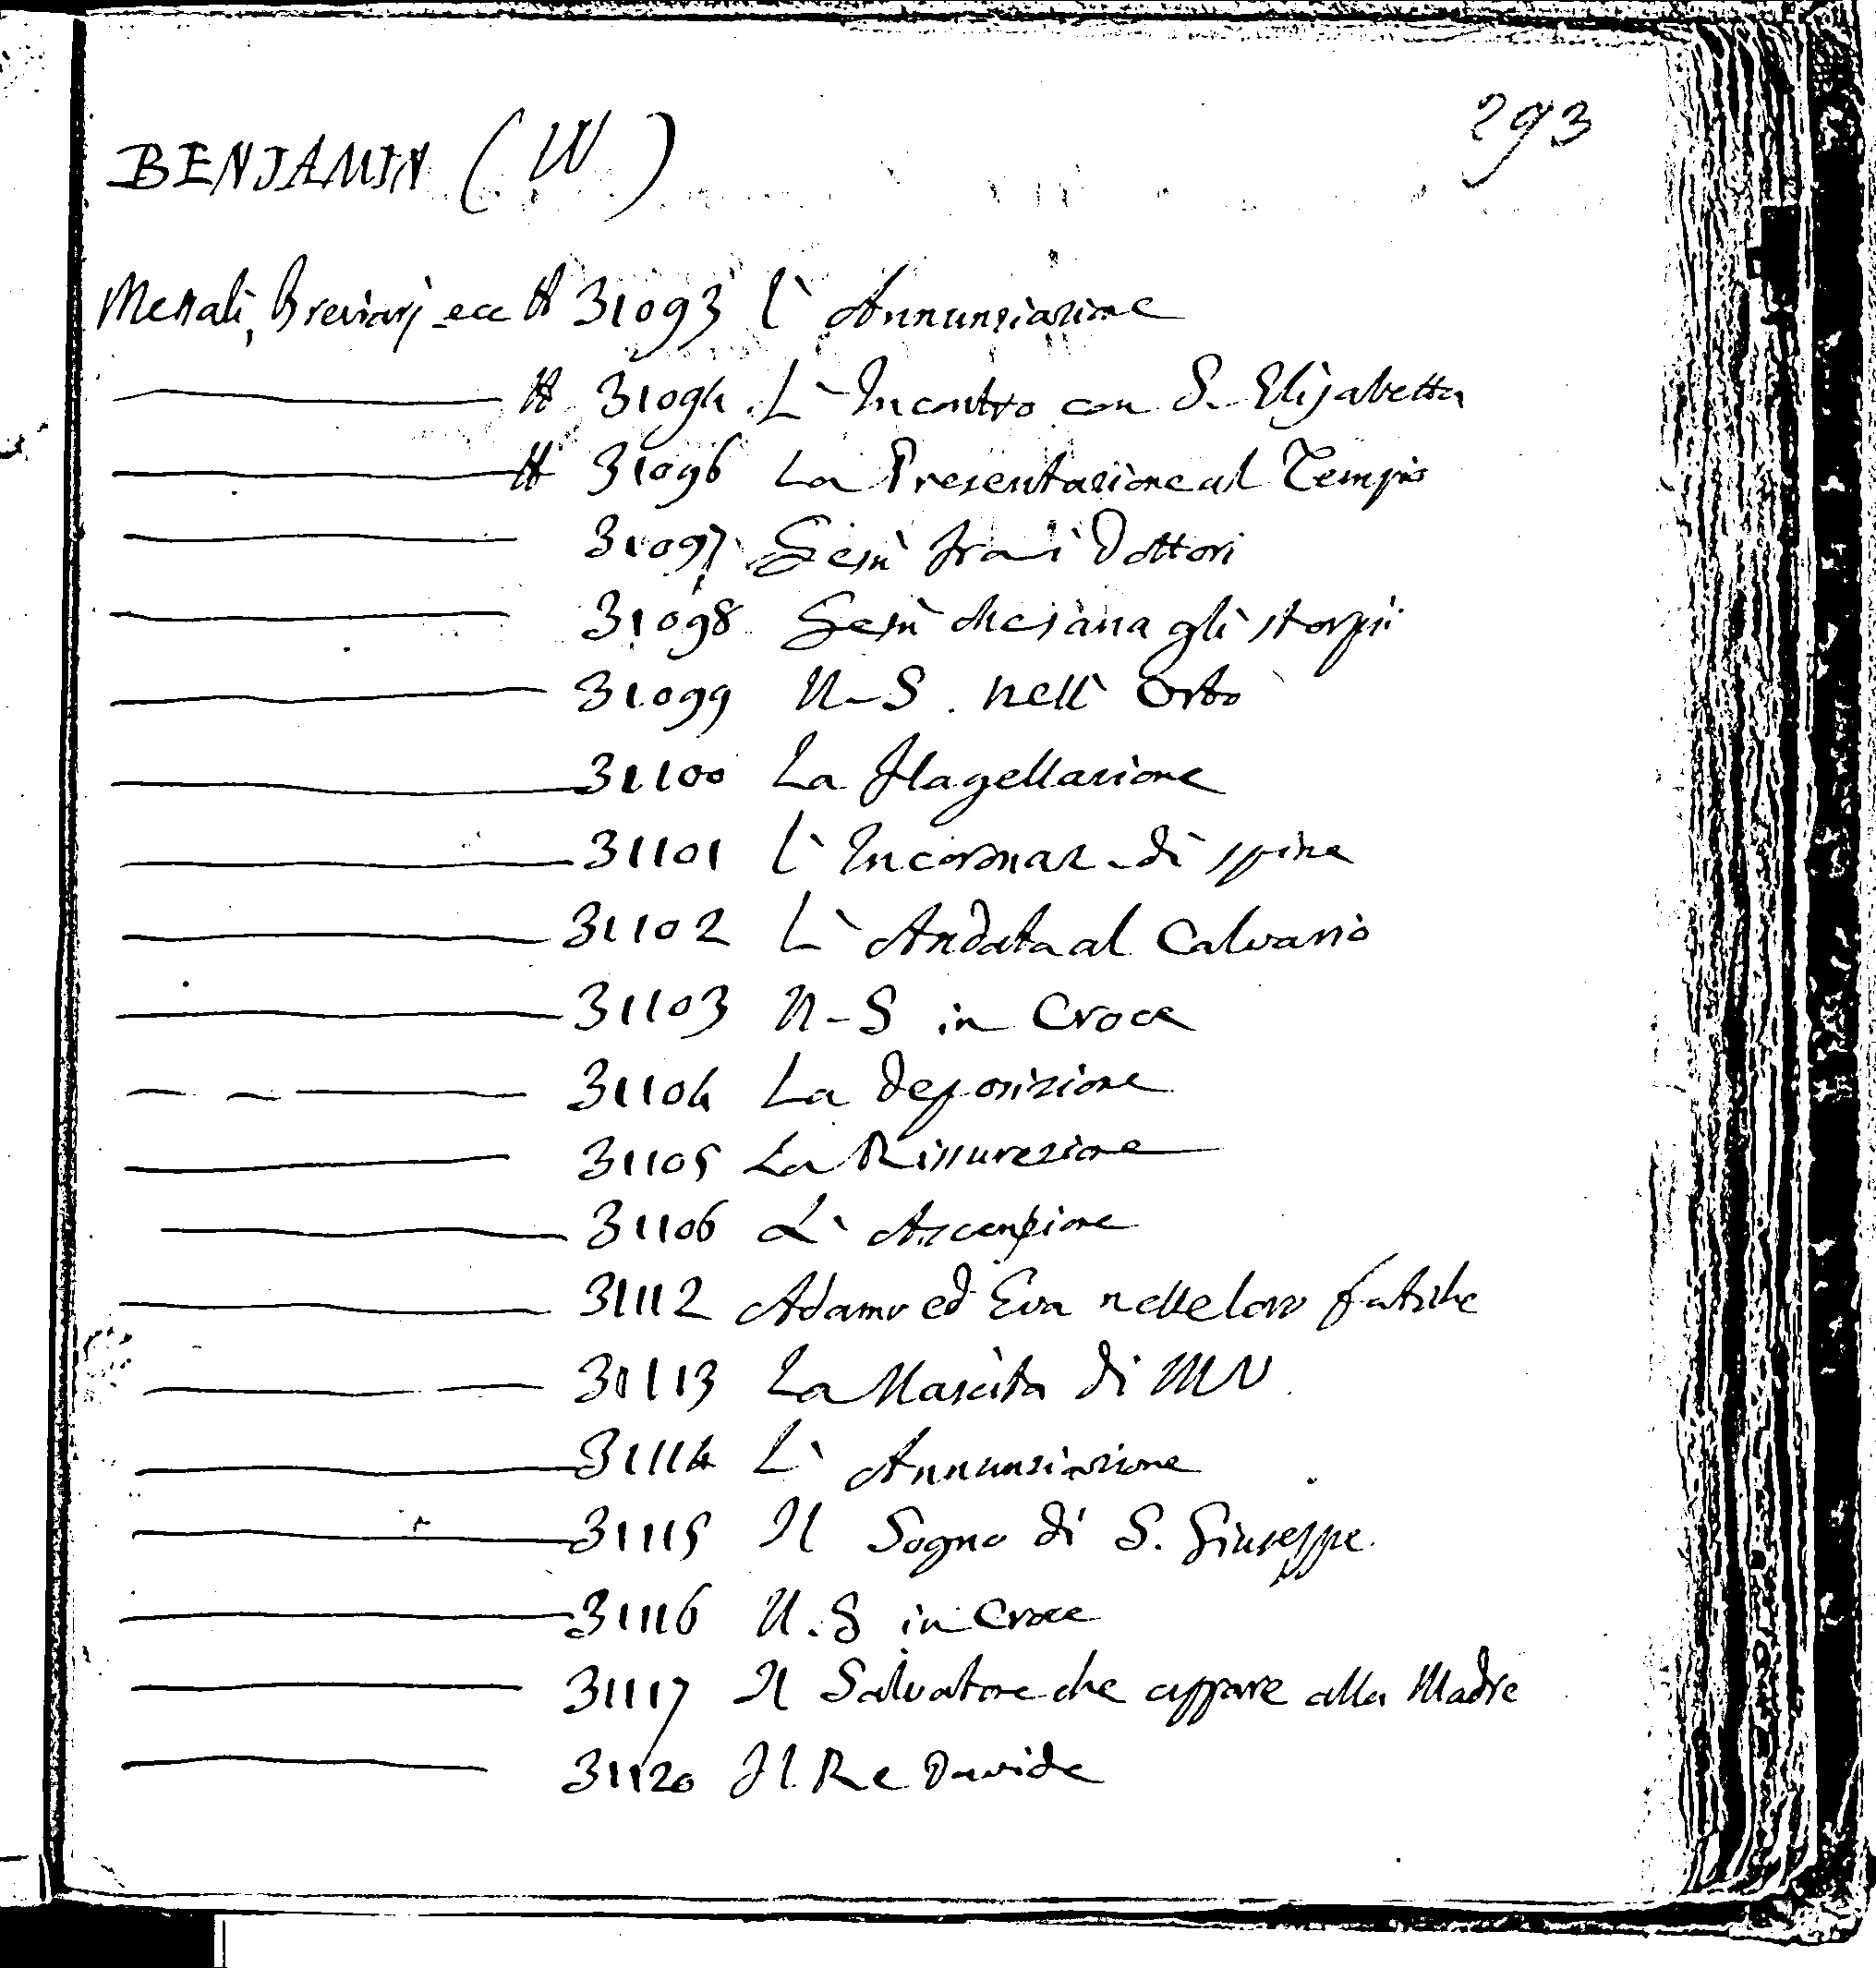 293
BENJAMIN (W)
Messali, Breviarj ecc # 31093 l' Annunziazione
# 31094 L' Incontro con S. Elisabetta
# 31096 La Presentazione al Tempio
31097 Gesù fra i Dottori
31098 Gesù che sana gli storpii
31099 N-S. nell' Orto
31100 La Flagellazione
31101 l' Incoronaz. di spine
31102 L' Andata al Calvario
31103 N-S in Croce
31104 La deposizione
31105 La Rissurezione
31106 L' Ascensione
31112 Adamo ed Eva nelle loro fatiche
31113 La Nascita di MV
31114 L' Annunziazione
31115 Il Sogno di S. Giuseppe
31116 N.S in Croce
31117 Il Salvatore che appare alla Madre
31120 Il Re Davide